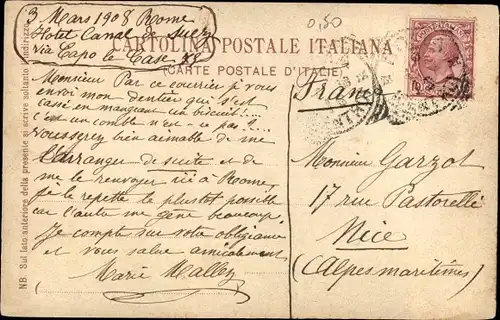 3 Mars 1908 Rome
Hotel Canal de Suez
via Capo le Case
0,50
CARTOLINA POSTALE ITALIANA
(CARTE POSTALE D'ITALIE)
10
NB. Sul lato anteriore della presente si scrive soltanto l'indirizzo.
Monsieur Par ce courrier je vous
envoi mon dentier qui s'est
cassé en mangeant un biscuit!...
c'est un comble n'est-ce pas?
Vous serez bien aimable de me
l'arranger de suite et de
me le renvoyer ici à Rome,
je le repette le plustot possible
car l'autre me gêne beaucoup.
Je compte sur votre obligeance
et vous salue amicalement
Marie Malley
France
Monsieur Garzol
17 rue Pastorelli
Nice
(Alpes maritimes)